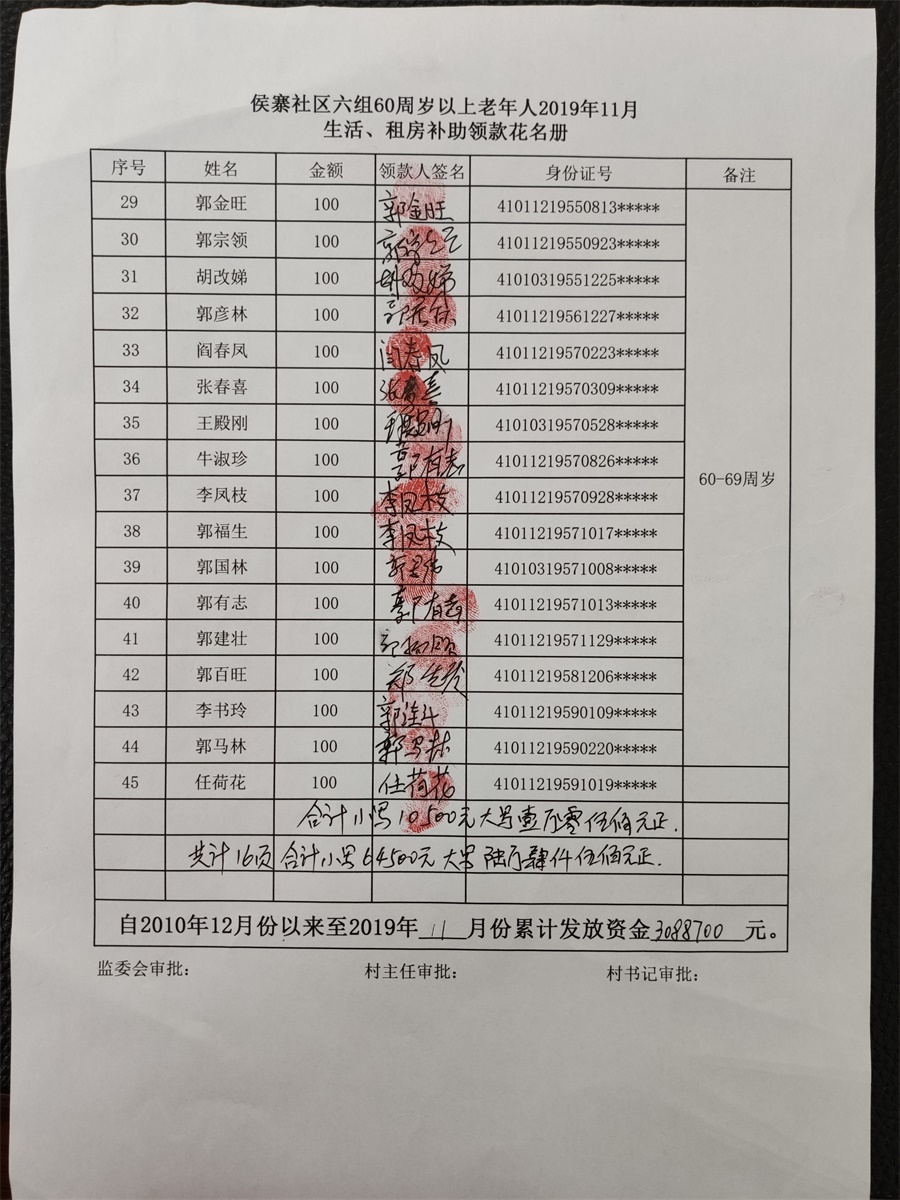 侯寨社区六组60周岁以上老年人2019年11月
生活、租房补助领款花名册
序号 姓名 金额 领款人签名 身份证号 备注
29 郭金旺 100 郭金旺 41011219550813*****
30 郭宗领 100 41011219550923*****
31 胡改娣 100 胡改娣 41010319551225*****
32 郭彦林 100 41011219561227*****
33 阎春凤 100 闫春凤 41011219570223*****
34 张春喜 100 张春喜 41011219570309*****
35 王殿刚 100 王殿刚 41010319570528*****
36 牛淑珍 100 郭有志 41011219570826*****
60-69周岁
37 李凤枝 100 李凤枝 41011219570928*****
38 郭福生 100 李凤枝 41011219571017*****
39 郭国林 100 41010319571008*****
40 郭有志 100 郭有志 41011219571013*****
41 郭建壮 100 41011219571129*****
42 郭百旺 100 41011219581206*****
43 李书玲 100 41011219590109*****
44 郭马林 100 郭马林 41011219590220*****
45 任荷花 100 任荷花 41011219591019*****
合计小写10500元大写壹万零伍佰元正.
共计16页 合计小写64500元 大写陆万肆仟伍佰元正.
自2010年12月份以来至2019年 11 月份累计发放资金3088700元。
监委会审批： 村主任审批： 村书记审批：